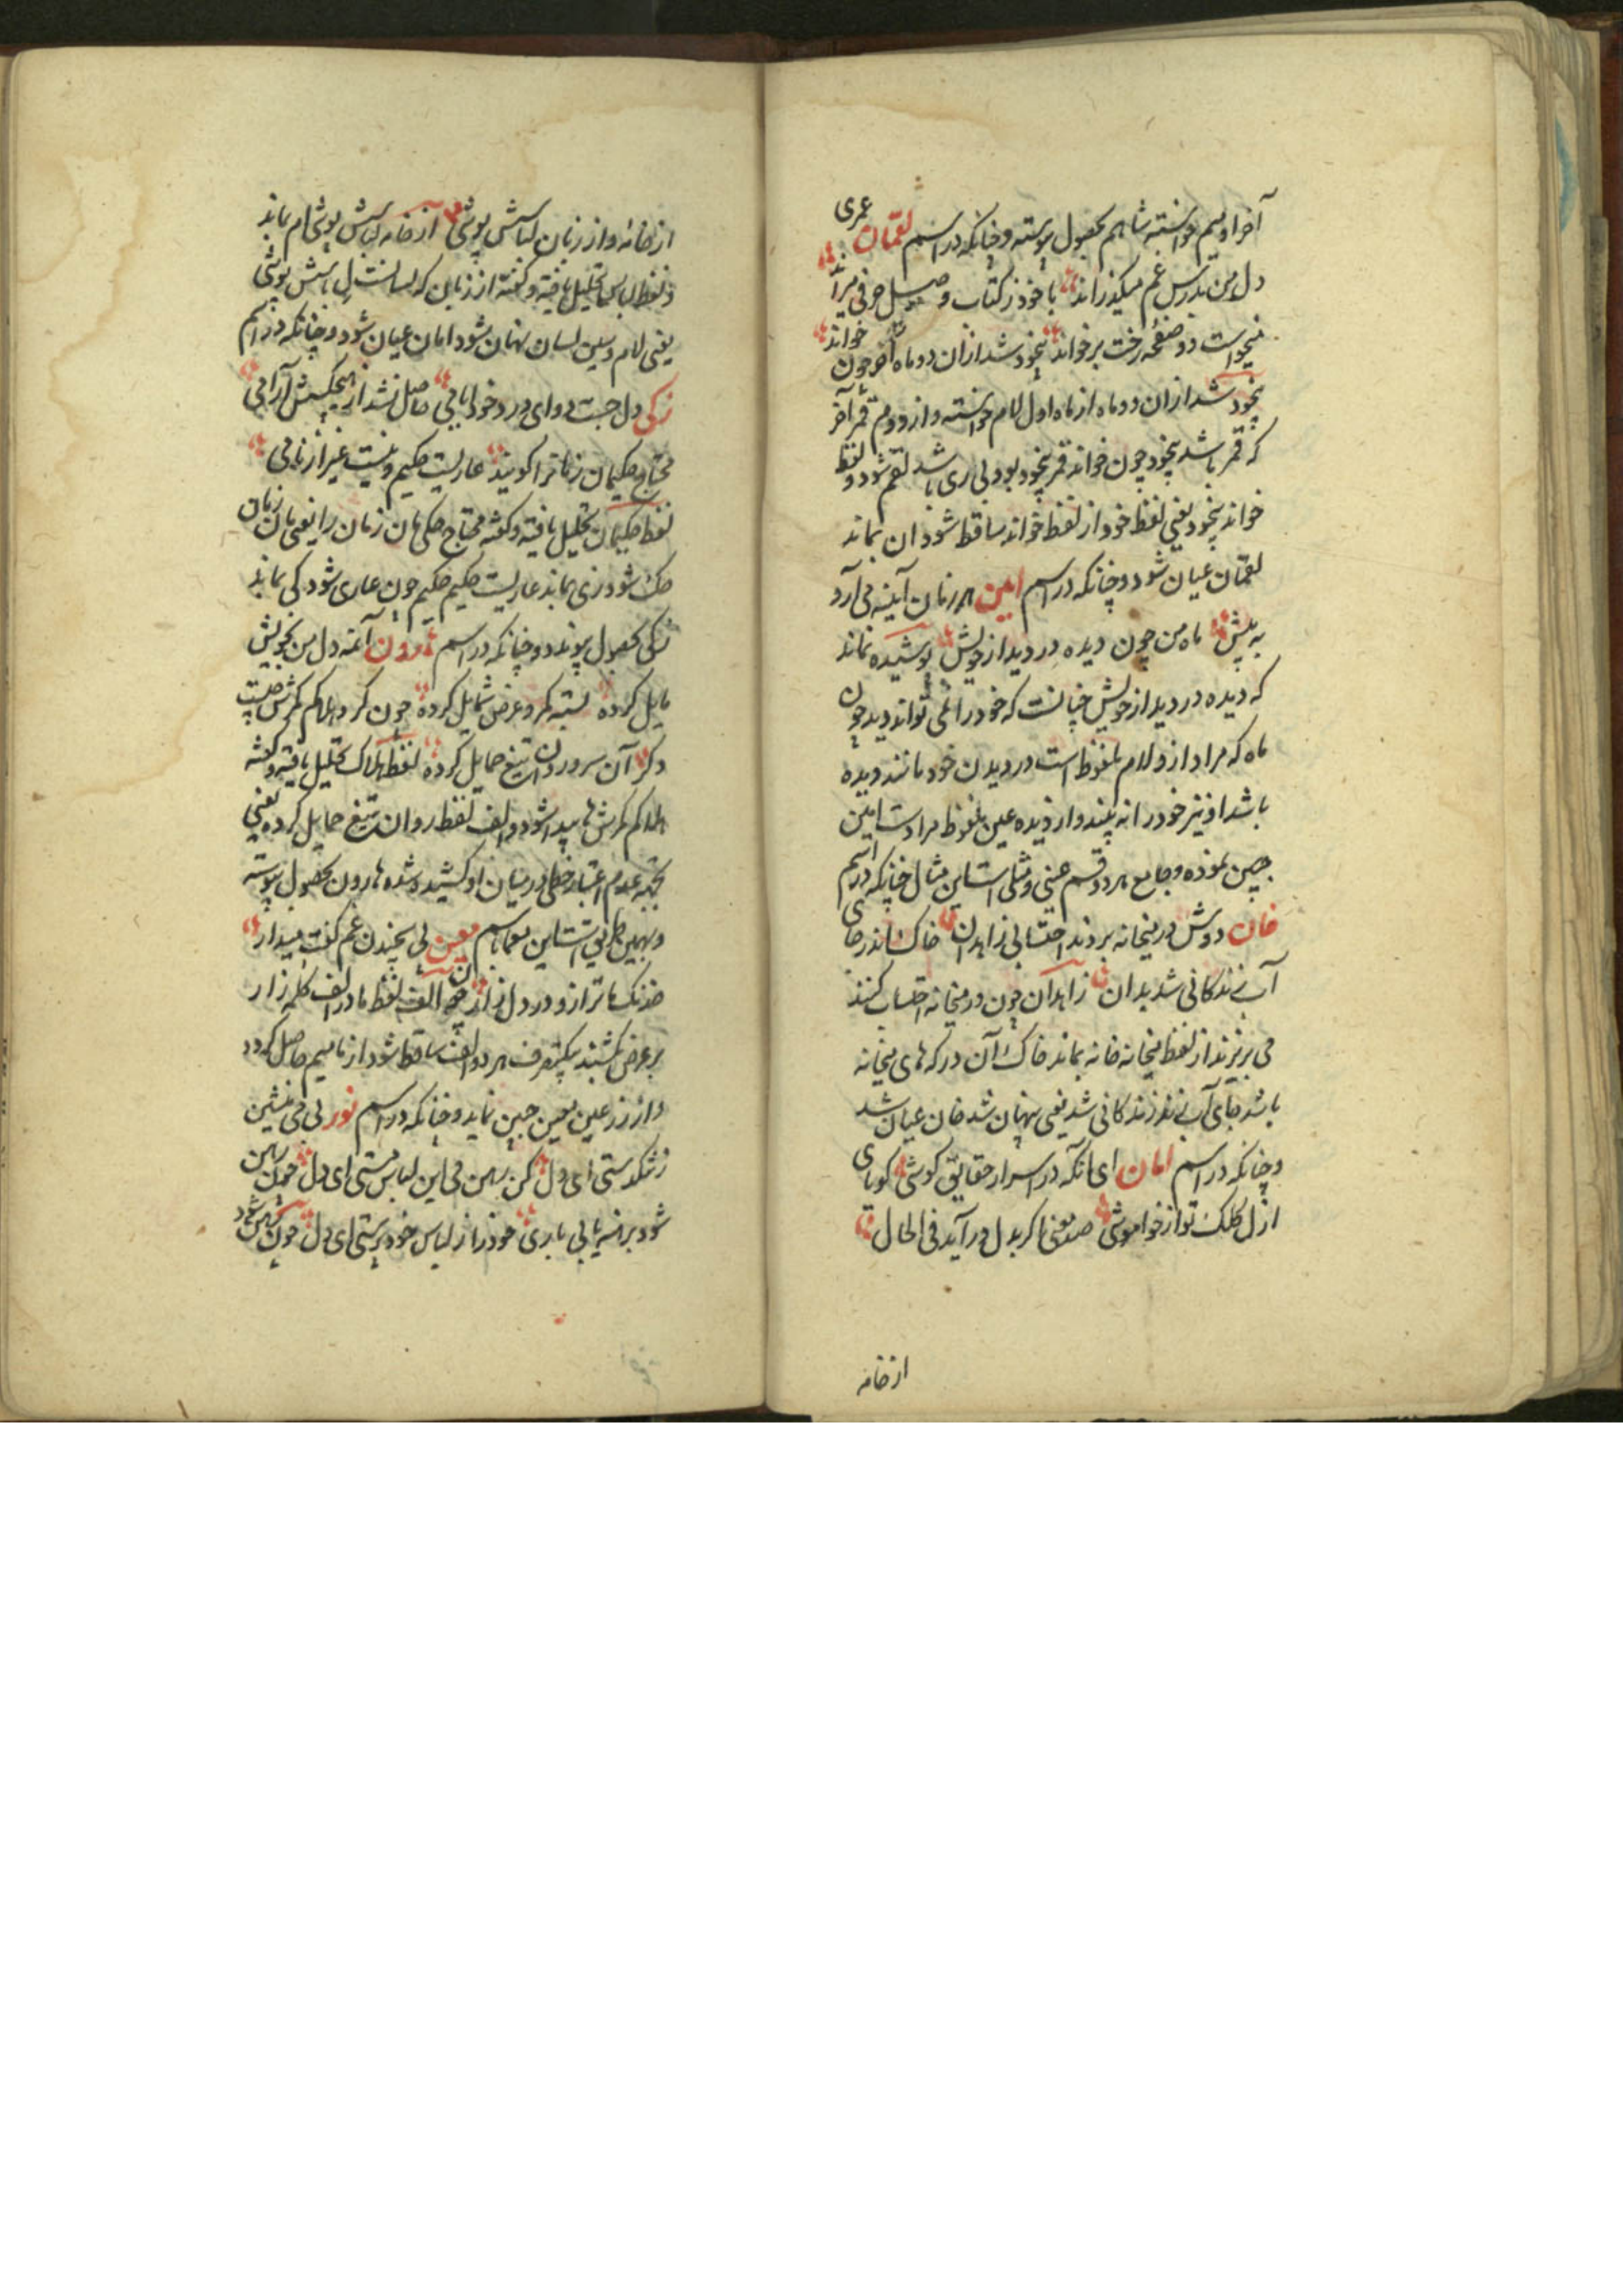 آخر او میم خواسته شاهم بحصول پیوسته و چنانکه در اسم لقمان عمری
دل من بدرس غم میگذراند با خود ز کتاب وصل حرفی میراند
میخواست دو صفحه رخت بر خواند بیخود شد ازان دو ماه آخر چون خواند
بیخود شد ازان دو ماه از ماه اول لام خواسته و از دوم قمر آخر
که قمر باشد بیخود چون خواند قمر بیخود بود بی ری باشد لقم شود و لفظ
خواند بیخود یعنی لفظ خود از لفظ خواند ساقط شود ان بماند
لقمان عیان شود و چنانکه در اسم امین هر زمان آینه می آرد
به پیش ماه من چون دیده در دیدار خویش پوشیده نماند
که دیده در دیدار خویش چنانست که خود را نمی تواند دید چون
ماه که مراد ازو لام ملفوظ است در دیدن خود مانند دیده
باشد او نیز خود را نه بیند و از دیده عین ملفوظ مرادست امین
جبین نموده و جامع هر دو قسم عینی و مثلی است این مثال چنانکه در اسم
خان دوش در میخانه بردند احتسابی زاهدان خاک اندر جای
آب زندگانی شد بدان زاهدان چون در میخانه احتساب کنند
می بریزند از لفظ میخانه خانه بماند خاک آن درکه های میخانه
باشد جای آب زندگانی شد یعنی پنهان شد خان عیان شد
و چنانکه در اسم امان ای آنکه در اسرار حقایق کوشی کویای
ازل کلک تو از خواموشی صد معنی بکر بدل در آید فی الحال
از خامه
از خامه و از زبان لباسش پوشی از خامه لباسش پوشی ام بماند
و لفظ لباس تحلیل یافته و گفته از زبان که لسانست ل باسش پوشی
یعنی لام و سین لسان نهان شود امان عیان شود و چنانکه در اسم
زکی دل جست دوای درد خود ایامی حاصل نشد از هیچکسش آرامی
محتاج حکیمان زمانرا گویند عاریست حکیم و نیست غیر از نامی
لفظ حکیمان تحلیل یافته و گفته محتاج حکی مان زمان را یعنی مان زمان
حک شود زی بماند عاریست حکیم حکیم چون عاری شود کی بماند
زکی بحصول پیوندد و چنانکه در اسم هارون آنمه دل من بخویش
مایل کرده بسته کمر و عرض شمایل کرده چون کرد هلاکم کمرش چیست
دگر آن سرو روان تیغ حمایل کرده لفظ هلاک تحلیل یافته و گفته
هلاکم کمرش ها پیدا شود و الف لفظ روان تیغ حمایل کرده یعنی
بجهة عدم اعتبار خطی در میان او کشیده شده هارون بحصول پیوسته
و بهمین طریق است این معما باسم معین بی چندن غم گفت میدار
خدنک ما ترازو در دل زار چون الف لفظ ما در الف کلمه زار
بر عرض کشند یکتصرف هر دو الف ساقط شود از ما میم حاصل گردد
و از زر عین معین جبین نماید و چنانکه در اسم نور بی می منشین
ز تنگدستی ای دل کن رهن می این لباس هستی ای دل چون رهن
شود برهنه یابی باری خود را ز لباس خود پرستی ای دل چون رهن شود